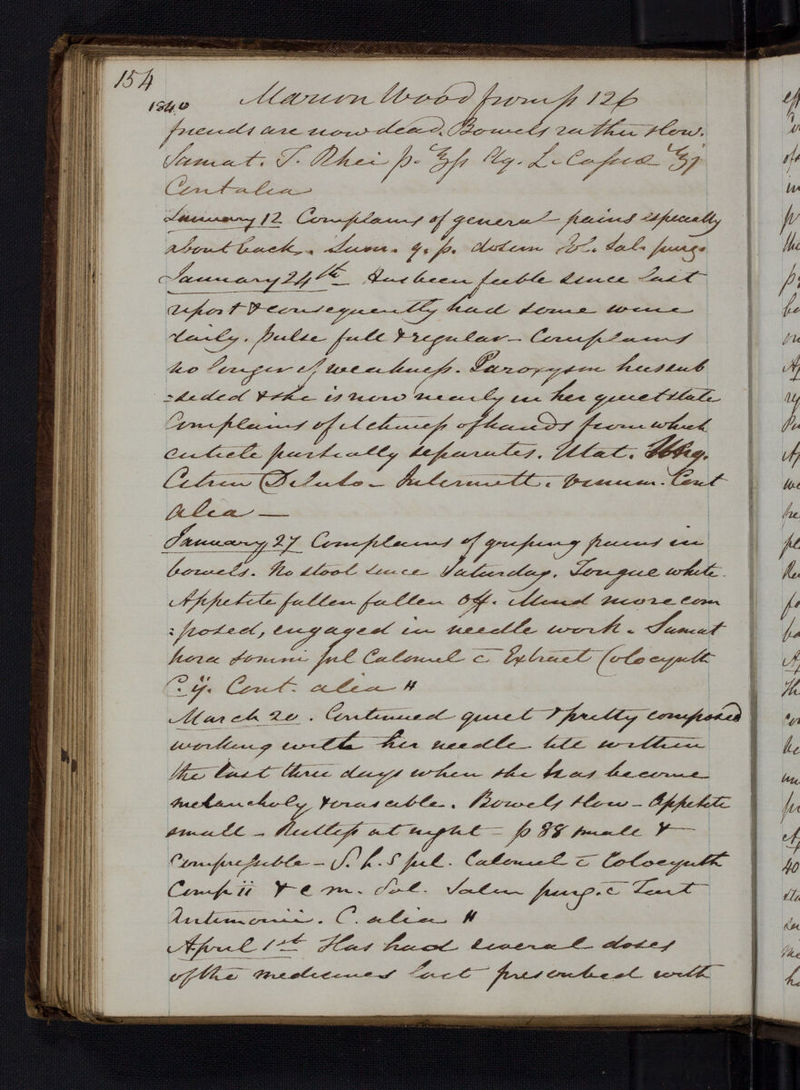 154
1840 Marion Wood from p 126
friends are now dead. Bowels rather slow.
Sumat. T. Rhei p. ℥ss
Cont alia
January 12 Complains of general pains especially
about back. Sum. q. p. dosem Sol. Sal. purg.
January 24th Has been feeble since last
report & consequently had some wine
daily. Pulse full & regular - Complains
no longer of weakness. Paroxysm has sub
=sided & she is now nearly in her quiet state
Complains of itchiness of hands from which
cuticle partially separates. Utat. Ung.
Citrin Diluto - Intermitt. vinum. Cont
alia -
January 27 Complains of griping pains in
bowels. No stool since Saturday. Tongue white.
Appetite fallen fallen off. Mind more com
=posed, engaged in needle work. Sumat
hora somni pil Calomel c̄ Extract Colocynth
C. ij. Cont. alia
March 20. Continued quiet & pretty composed
working with her needle till within
the last three days when she has become
melancholy & irascible. Bowels slow - Appetite
small - Restless at night - p 88 small &
Compressible - S. h. s pil. Calomel c̄ Colocynth
Comp ii & c m. Sol. Salin purg. c̄ Tart
Antimonii. C. alia
April 1st Has had several doses
of the medicines last prescribed with